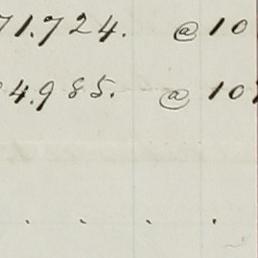 71.724. @ 10
4.985. @ 10
. . . .